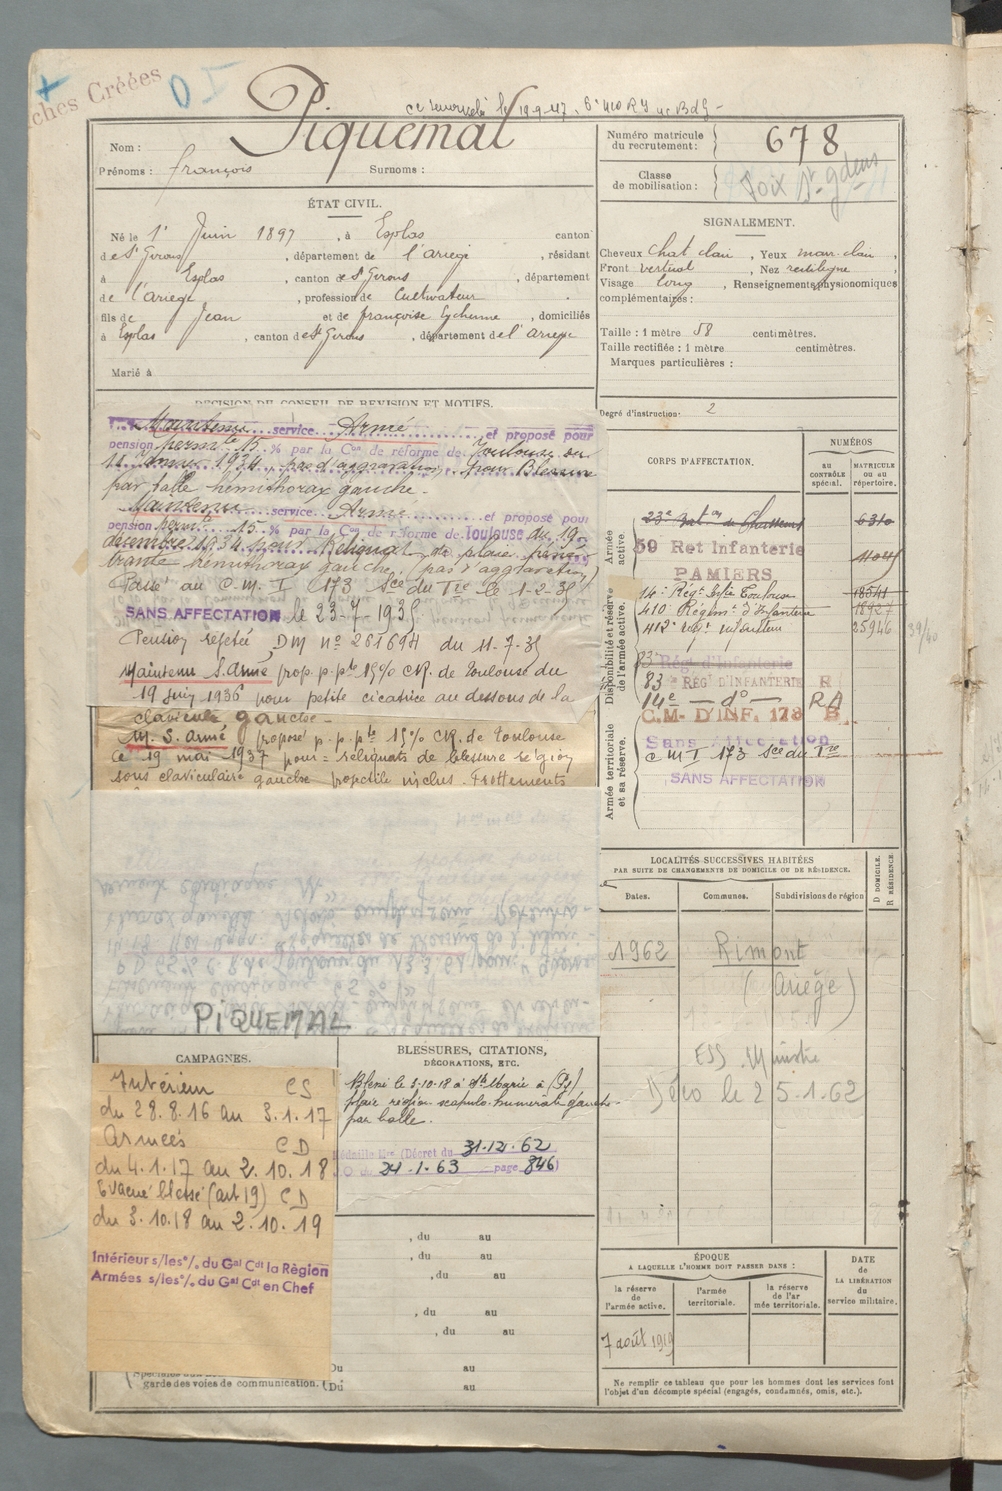 Fiches Créées
O I
le 19-9-47, 6° 410 RI
Nom : Piquemal
Prénoms : françois Surnoms :
Numéro matricule du recrutement : 678
Classe de mobilisation :
Foix St gdens
ÉTAT CIVIL.
Né le 1er Juin 1897, à Esplas canton
de St Girons, département de l'ariège, résidant
à Esplas, canton de St Girons, département
de l'ariège, profession de Cultivateur
fils de Jean et de françoise Eychenne, domiciliés
à Esplas, canton de St Girons, département de l'ariège
Marié à
SIGNALEMENT.
Cheveux chat clair, Yeux marr. clair,
Front vertical, Nez rectiligne,
Visage long, Renseignements physionomiques
complémentaires :
Taille : 1 mètre 58 centimètres.
Taille rectifiée : 1 mètre centimètres.
Marques particulières :
Degré d'instruction : 2
DÉCISION DU CONSEIL DE RÉVISION ET MOTIFS.
Maintenu service Armé et proposé pour
pension permte 15 % par la Con de réforme de Toulouse du
1934, pas d'aggravation, pour Blessure
par balle hémithorax gauche.
Maintenu service Armé et proposé pour
pension permte 15 % par la Con de réforme de Toulouse du 19
décembre 1934 pour Reliquat de plaie péné-
trante hémithorax gauche, (pas d'aggravation)
Passé au C.M. I 173 Sce du Tre le 1-2-35
SANS AFFECTATION le 23-7-1935
Pension DM n° 261694 du 11-7-35
Maintenu S. armé prop. p. pte 15% CR. de Toulouse du
19 juin 1936 pour petite cicatrice au dessous de la
clavicule gauche -
M. S. armé proposé p. p. pte 15% CR. de Toulouse
Ce 19 mai 1937 pour = reliquats de blessure région
sous claviculaire gauche projectile inclus - Frottements
PIQUEMAL
CORPS D'AFFECTATION.
NUMÉROS
AU CONTRÔLE spécial.
MATRICULE OU AU répertoire.
Armée active.
23e Bat on de Chasseurs 6310
59 Ret Infanterie
PAMIERS
Disponibilité et réserve de l'armée active.
14e Régt Infie Toulouse 18541
410 Régimt d'Infanterie 18927
412e Regt infanterie 25946 39/40
83e Régt d'Infanterie
83e REGt D'INFANTERIE R
14e — do — RA
C.M. D'INF. 173 B.
Armée territoriale et sa réserve.
Sans Affectation
C M I 173 Sce du Tre
SANS AFFECTATION
LOCALITÉS SUCCESSIVES HABITÉES
PAR SUITE DE CHANGEMENTS DE DOMICILE OU DE RÉSIDENCE.
Dates. Communes. Subdivisions de région
D DOMICILE.
R RÉSIDENCE.
1962 Rimont
(Ariège)
le 25.1.62
CAMPAGNES.
Intérieur CS
du 28.8.16 au 3.1.17
Armées CD
du 4.1.17 au 2.10.18
Evacué blessé (art 19) CD
du 3.10.18 au 2.10.19
Intérieur s/les o/. du Gal Cdt la Région
Armées s/les o/. du Gal Cdt en Chef
garde des voies de communication.
BLESSURES, CITATIONS,
DÉCORATIONS, ETC.
Blessé le 3-10-18 à Ste Marie à (Py)
plaie région scapulo-humérale gauche
par balle.
Médaille Mre (Décret du 31.12.62
J.O. du 24-1-63 page 846)
, du au
, du au
, du au
, du au
, du au
Du au
Du au
ÉPOQUE
A LAQUELLE L'HOMME DOIT PASSER DANS :
la réserve de l'armée active.
l'armée territoriale.
la réserve de l'armée territoriale.
DATE de LA LIBÉRATION du service militaire.
7 août 1919
Ne remplir ce tableau que pour les hommes dont les services font
l'objet d'un décompte spécial (engagés, condamnés, omis, etc.).